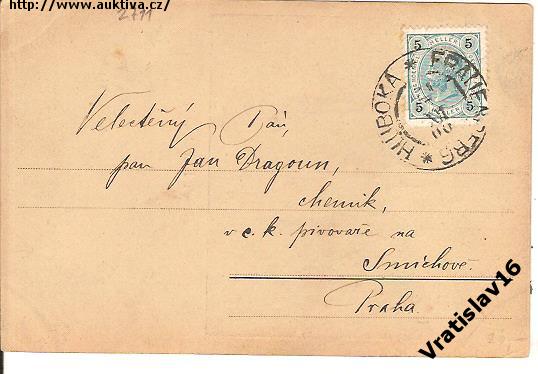 http://www.auktiva.cz/
2711
5 HELLER 5
5 5
HLUBOKA * FRAUENBERG *
Velectěný Pán,
pan Jan Dragoun,
chemik,
v c. k. pivovaře na
Smíchově.
Praha.
Vratislav16